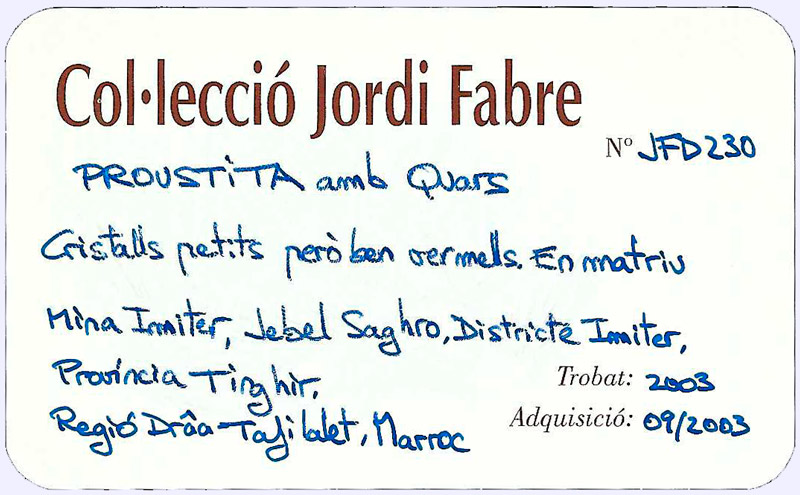 Col·lecció Jordi Fabre
Nº JFD230
PROUSTITA amb Quars
Cristalls petits però ben vermells. En matriu
Mina Imiter, Jebel Saghro, Districte Imiter,
Província Tinghir,
Trobat: 2003
Regió Drâa-Tafilalet, Marroc
Adquisició: 09/2003